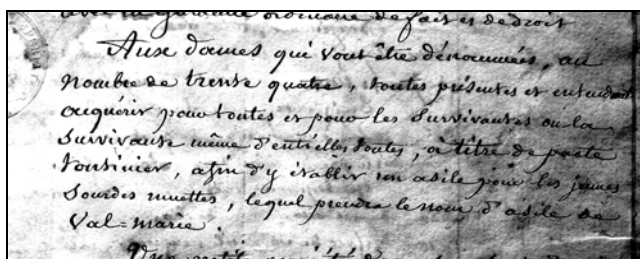 avec la garantie ordinaire de fait et de droit
Aux dames qui vont être dénommées, au
nombre de trente quatre, toutes présentes et entendant
acquérir pour toutes et pour les survivantes ou la
survivante même d'entr'elles toutes, à titre de pacte
tontinier, afin d'y établir un asile pour les jeunes
sourdes muettes, lequel prendra le nom d'asile de
Val=marie.
Une petite